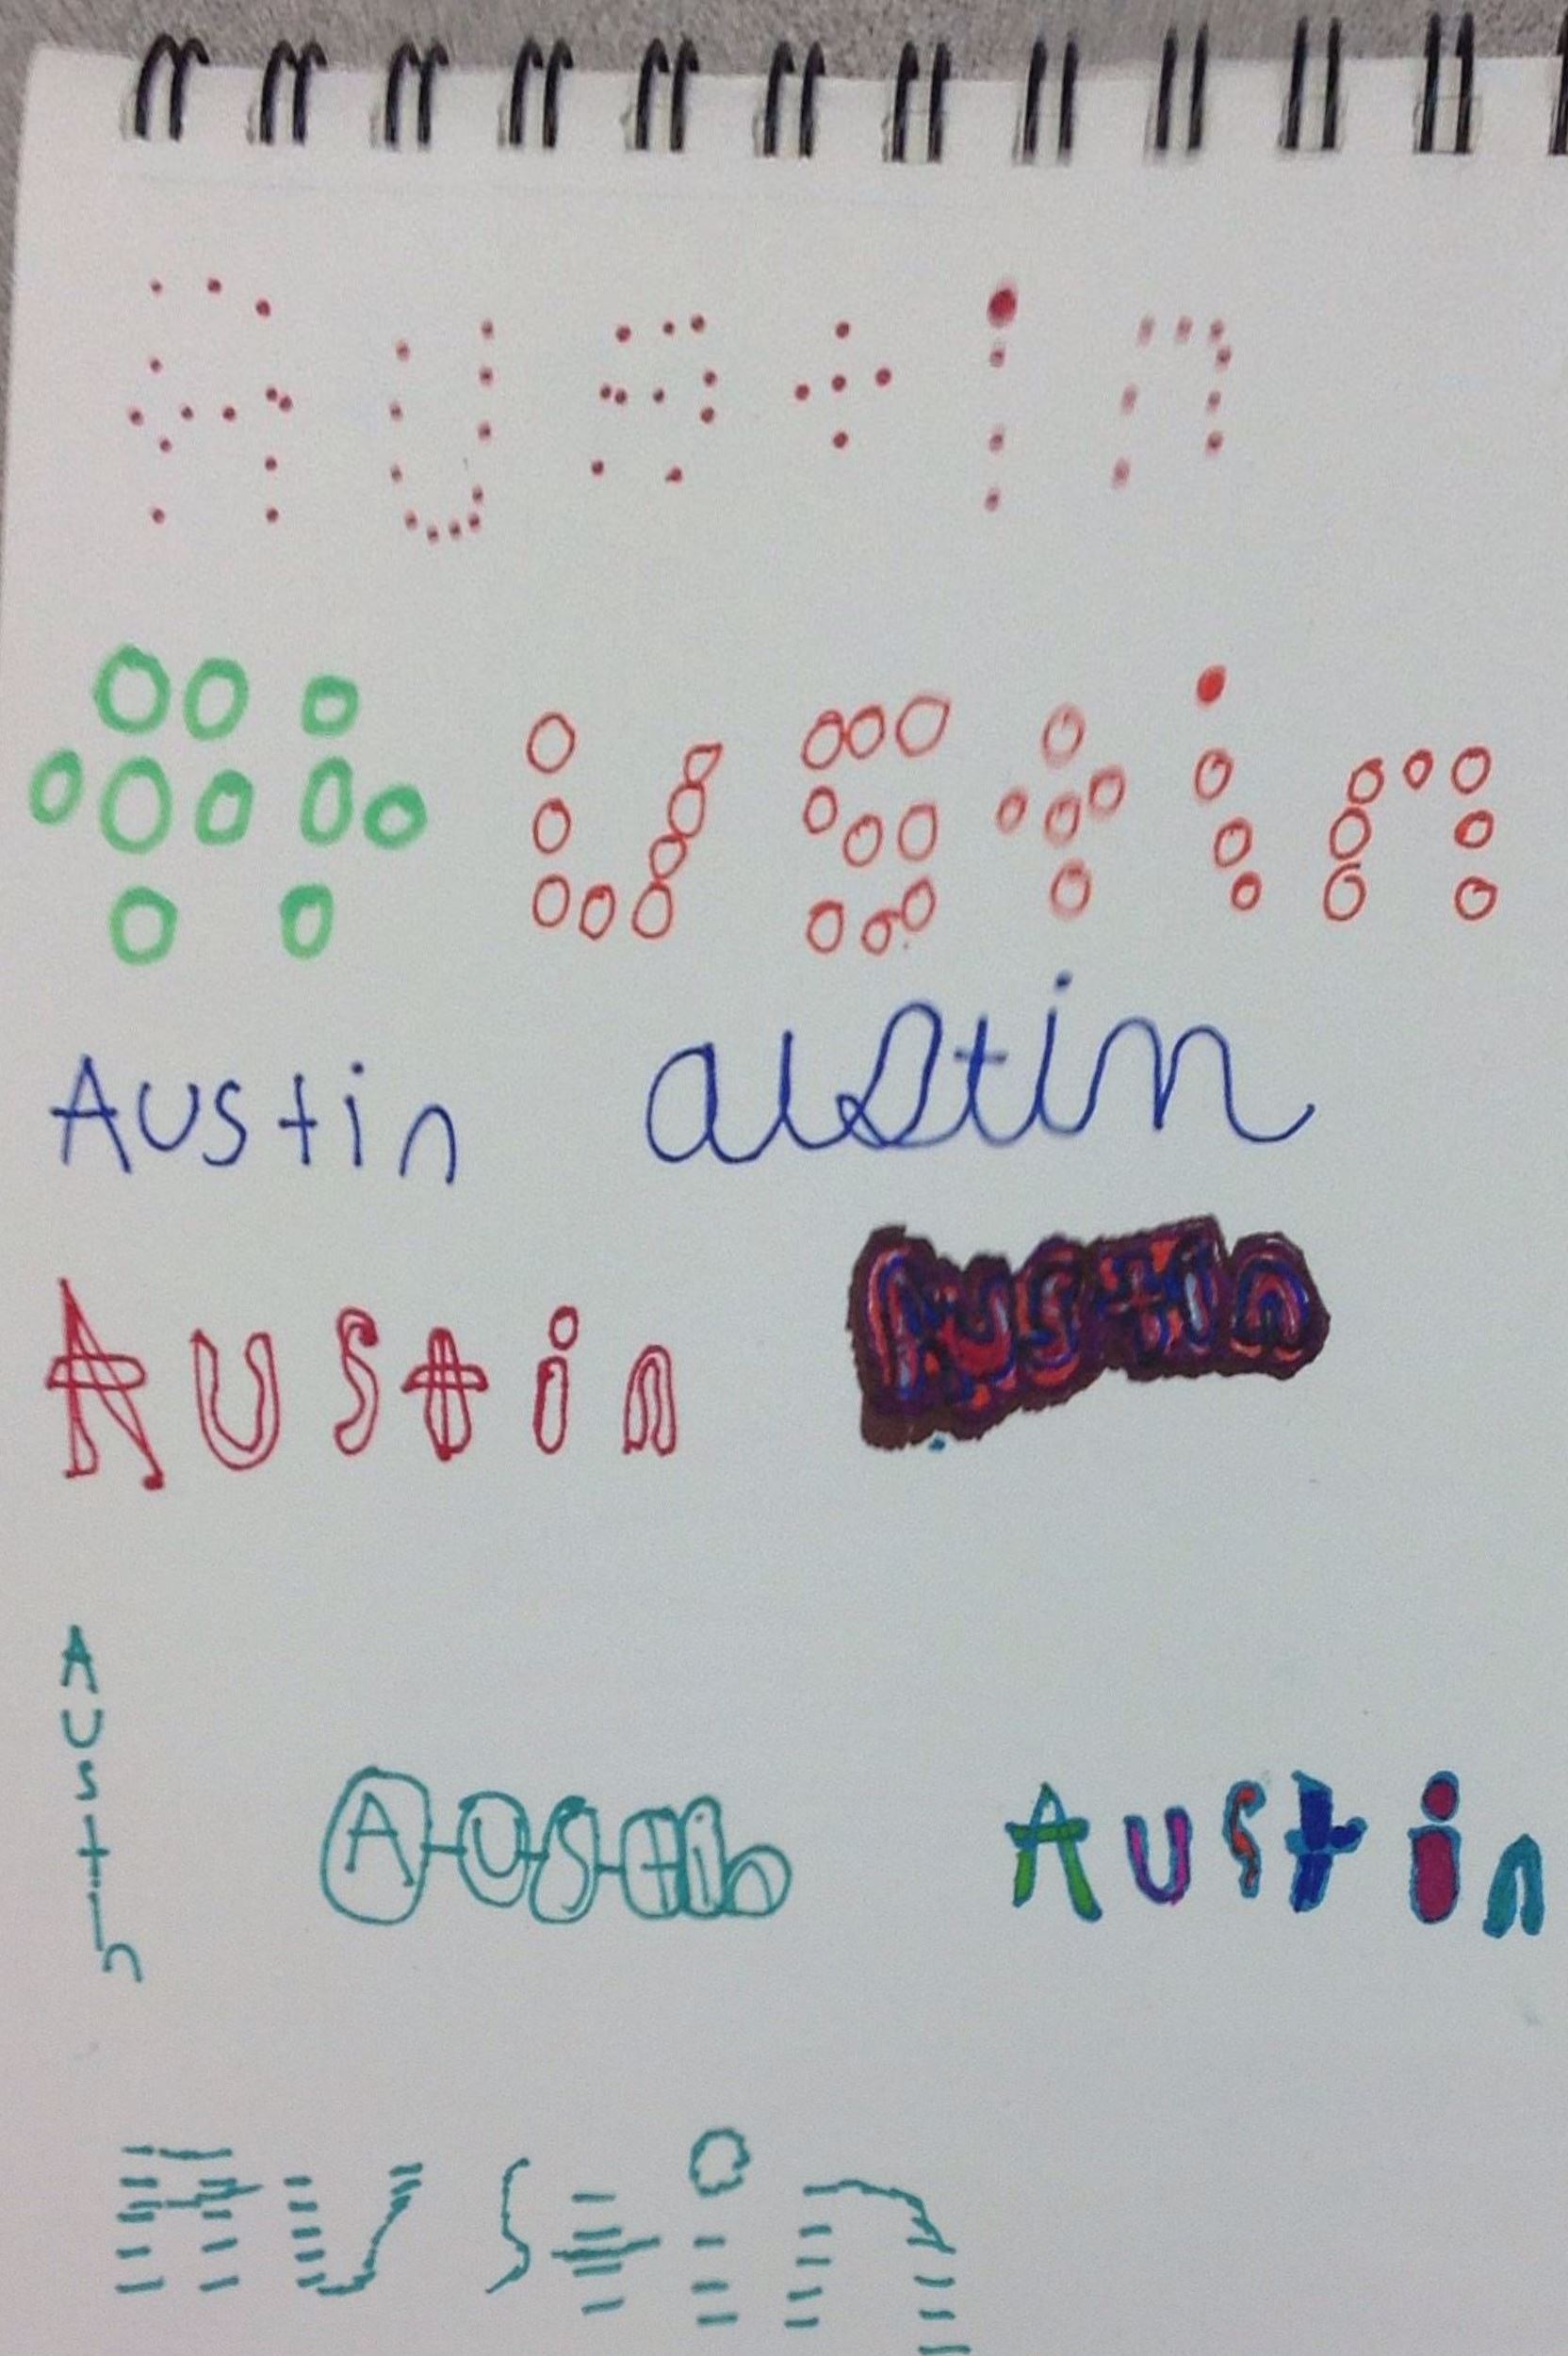 Austin
Austin
Austin austin
Austin Austin
Austin
Austin Austin
Austin